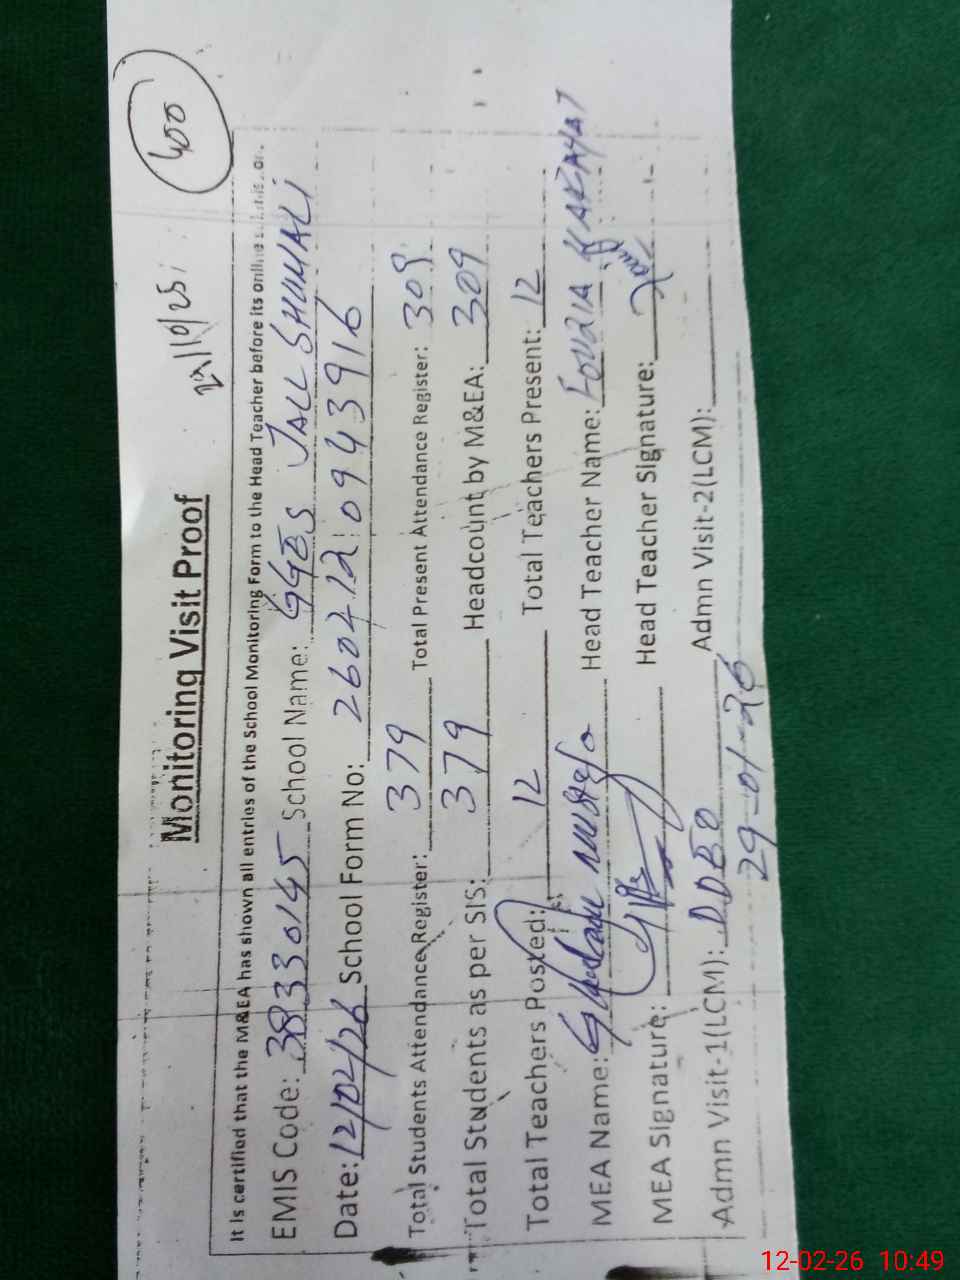 400
Monitoring Visit Proof
It is certified that the M&EA has shown all entries of the School Monitoring Form to the Head Teacher before its online
EMIS Code: 38330145 School Name: GGES JALL SHUMALI
Date: 12/02/26 School Form No: 260212 0943916
Total Students Attendance Register: 379 Total Present Attendance Register: 309
Total Students as per SIS: 379 Headcount by M&EA: 309
Total Teachers Posted: 12 Total Teachers Present: 12
MEA Name: Head Teacher Name: FOUZIA
MEA Signature: Head Teacher Signature:
Admn Visit-1(LCM): DDEO Admn Visit-2(LCM):
29-01-26
12-02-26 10:49